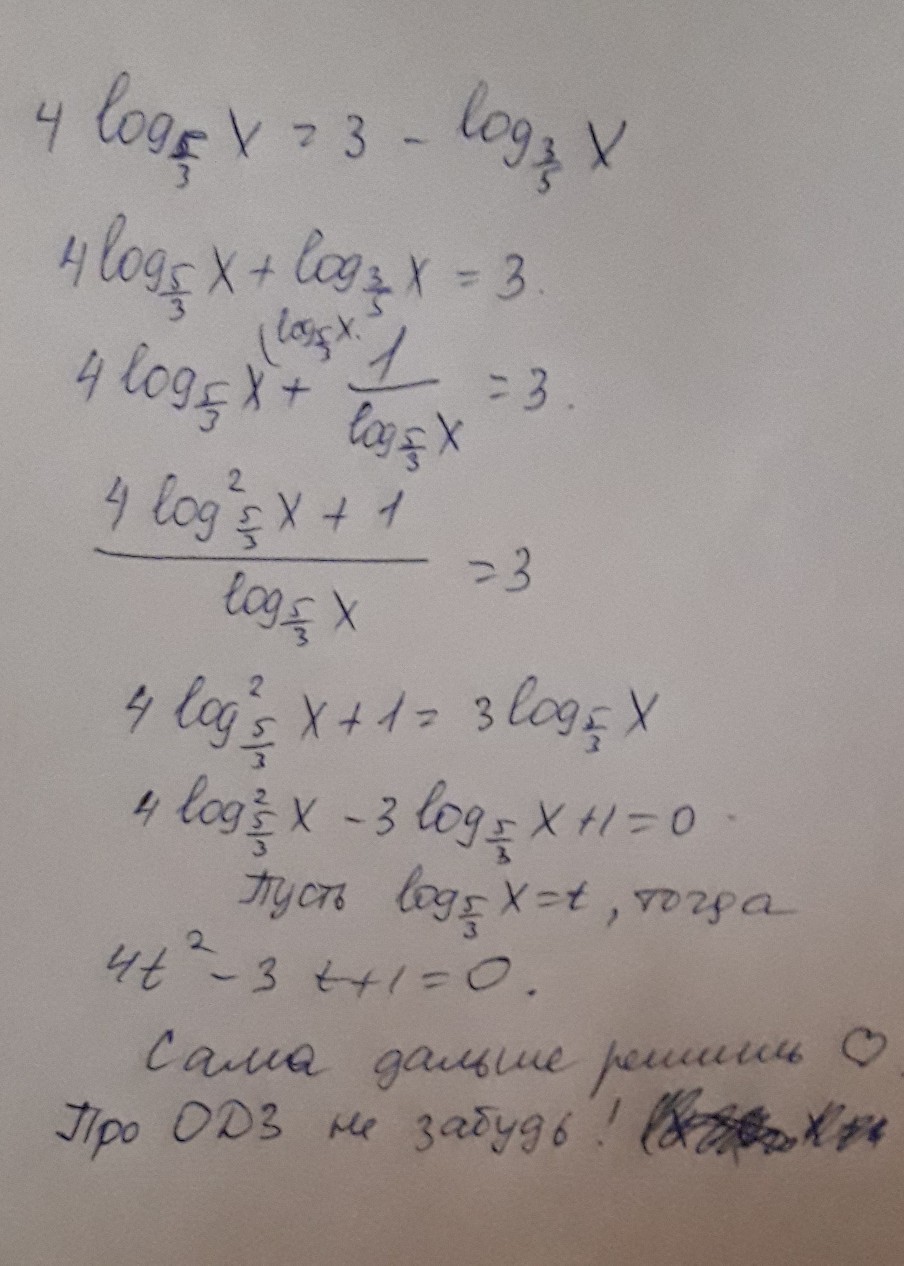 4 log_{5/3} X = 3 - log_{3/5} X
4 log_{5/3} X + log_{3/5} X = 3.
(log_{5/3} X.
4 log_{5/3} X + \frac{1}{log_{5/3} X} = 3.
\frac{4 log^2_{5/3} X + 1}{log_{5/3} X} = 3
4 log^2_{5/3} X + 1 = 3 log_{5/3} X
4 log^2_{5/3} X - 3 log_{5/3} X + 1 = 0
Пусть log_{5/3} X = t, тогда
4t^2 - 3 t + 1 = 0.
Сама дальше решишь ♡
Про ОДЗ не забудь!